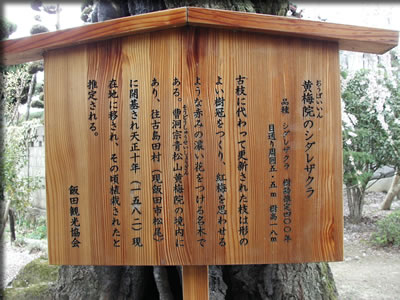 おうばいいん
黄梅院のシダレザクラ
品種 シダレザクラ 樹齢推定四〇〇年
目通り周囲五・五m 樹高一八m
古枝に代わって更新された枝は形の
よい樹冠をつくり、紅梅を思わせる
ような赤みの濃い花をつける名木で
ある。曹洞宗青松山黄梅院の境内に
あり、往古島田村(現飯田市松尾)
に開基され天正十年(一五八二)現
在地に移され、その頃植栽されたと
推定される。
飯田観光協会